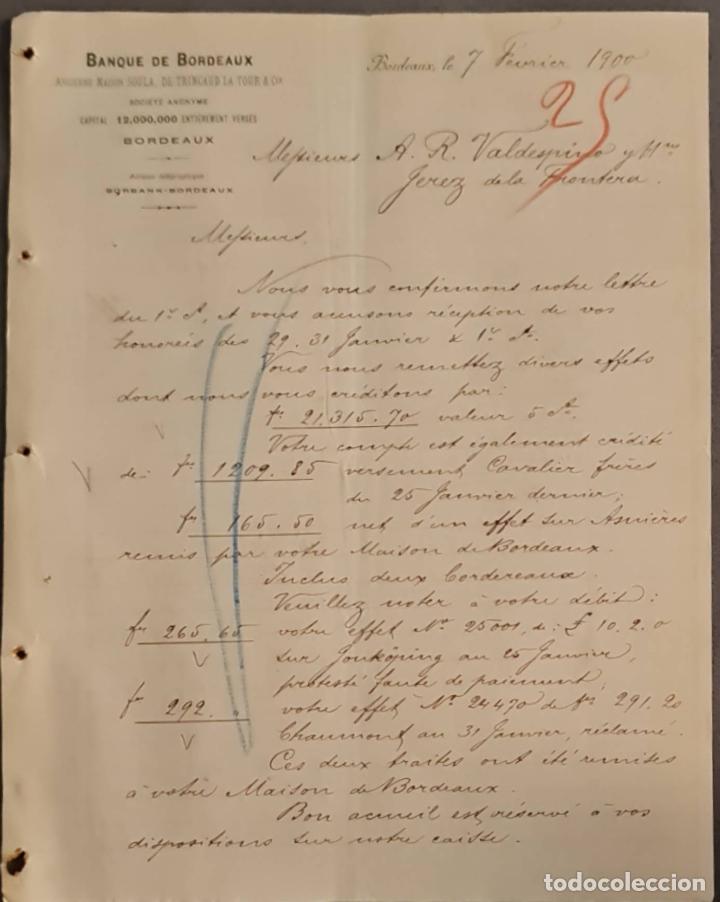 BANQUE DE BORDEAUX
ANCIENNE MAISON SOULA, DE TRINCAUD LA TOUR & Cie
SOCIÉTÉ ANONYME
CAPITAL 12,000,000 ENTIÈREMENT VERSÉS
BORDEAUX
Adresse télégraphique
BORBANK-BORDEAUX
Bordeaux, le 7 Février 1900
25
Messieurs A. R. Valdespino y Hno
Jerez de la Frontera.
Messieurs,
Nous vous confirmons notre lettre
du 1er Ct, et vous accusons réception de vos
honorés des 29. 31 Janvier & 1er Ct.
Vous nous remettez divers effets
dont nous vous créditons par:
fr 21,315.70 valeur 5 Ct.
Votre compte est également crédité
de: fr 1209.85 versement Cavalier frères
du 25 Janvier dernier;
fr 165.50 net d'un effet sur Asnières
remis par votre Maison de Bordeaux.
Inclus deux bordereaux.
Veuillez noter à votre débit:
fr 265.65 votre effet No 25001, de: £ 10.2.0
sur Jonköping au 25 Janvier,
protesté faute de paiement;
fr 292. " votre effet No 24470 de frs 291.20
Chaumont au 31 Janvier, réclamé.
Ces deux traites ont été remises
à votre Maison de Bordeaux.
Bon accueil est réservé à vos
dispositions sur notre caisse.
todocoleccion